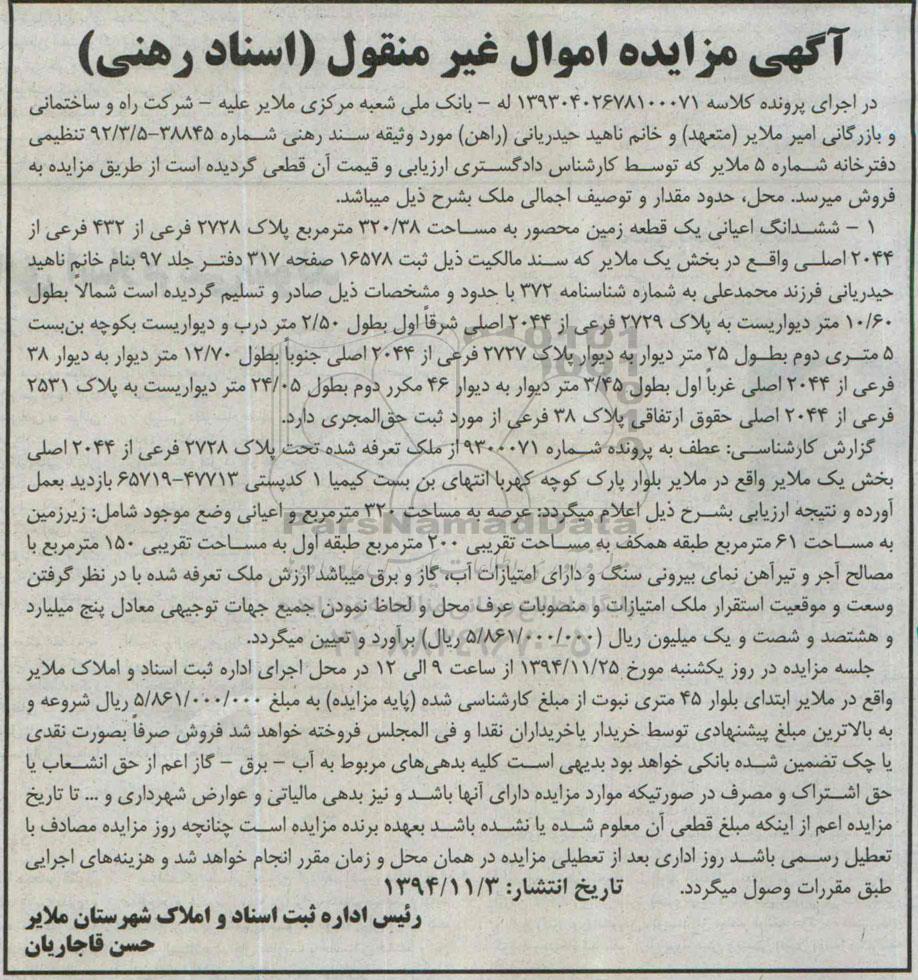 آگهی مزایده اموال غیر منقول (اسناد رهنی)
در اجرای پرونده کلاسه ۱۳۹۳۰۴۰۲۶۷۸۱۰۰۰۷۱ له - بانک ملی شعبه مرکزی ملایر علیه - شرکت راه و ساختمانی
و بازرگانی امیر ملایر (متعهد) و خانم ناهید حیدریانی (راهن) مورد وثیقه سند رهنی شماره ۳۸۸۴۵-۹۲/۳/۵ تنظیمی
دفترخانه شماره ۵ ملایر که توسط کارشناس دادگستری ارزیابی و قیمت آن قطعی گردیده است از طریق مزایده به
فروش میرسد. محل، حدود مقدار و توصیف اجمالی ملک بشرح ذیل میباشد.
۱ - ششدانگ اعیانی یک قطعه زمین محصور به مساحت ۳۲۰/۳۸ مترمربع پلاک ۲۷۲۸ فرعی از ۴۳۲ فرعی از
۲۰۴۴ اصلی واقع در بخش یک ملایر که سند مالکیت ذیل ثبت ۱۶۵۷۸ صفحه ۳۱۷ دفتر جلد ۹۷ بنام خانم ناهید
حیدریانی فرزند محمدعلی به شماره شناسنامه ۳۷۲ با حدود و مشخصات ذیل صادر و تسلیم گردیده است شمالاً بطول
۱۰/۶۰ متر دیواریست به پلاک ۲۷۲۹ فرعی از ۲۰۴۴ اصلی شرقاً اول بطول ۲/۵۰ متر درب و دیواریست بکوچه بن‌بست
۵ متری دوم بطول ۲۵ متر دیوار به دیوار پلاک ۲۷۲۷ فرعی از ۲۰۴۴ اصلی جنوباً بطول ۱۲/۷۰ متر دیوار به دیوار ۳۸
فرعی از ۲۰۴۴ اصلی غرباً اول بطول ۳/۴۵ متر دیوار به دیوار ۴۶ مکرر دوم بطول ۲۴/۰۵ متر دیواریست به پلاک ۲۵۳۱
فرعی از ۲۰۴۴ اصلی حقوق ارتفاقی پلاک ۳۸ فرعی از مورد ثبت حق‌المجری دارد.
گزارش کارشناسی: عطف به پرونده شماره ۹۳۰۰۰۷۱ از ملک تعرفه شده تحت پلاک ۲۷۲۸ فرعی از ۲۰۴۴ اصلی
بخش یک ملایر واقع در ملایر بلوار پارک کوچه کهربا انتهای بن بست کیمیا ۱ کدپستی ۴۷۷۱۳-۶۵۷۱۹ بازدید بعمل
آورده و نتیجه ارزیابی بشرح ذیل اعلام میگردد: عرصه به مساحت ۳۲۰ مترمربع و اعیانی وضع موجود شامل: زیرزمین
به مساحت ۶۱ مترمربع طبقه همکف به مساحت تقریبی ۲۰۰ مترمربع طبقه اول به مساحت تقریبی ۱۵۰ مترمربع با
مصالح آجر و تیرآهن نمای بیرونی سنگ و دارای امتیازات آب، گاز و برق میباشد ارزش ملک تعرفه شده با در نظر گرفتن
وسعت و موقعیت استقرار ملک امتیازات و منصوبات عرف محل و لحاظ نمودن جمیع جهات توجیهی معادل پنج میلیارد
و هشتصد و شصت و یک میلیون ریال (۵/۸۶۱/۰۰۰/۰۰۰ ریال) برآورد و تعیین میگردد.
جلسه مزایده در روز یکشنبه مورخ ۱۳۹۴/۱۱/۲۵ از ساعت ۹ الی ۱۲ در محل اجرای اداره ثبت اسناد و املاک ملایر
واقع در ملایر ابتدای بلوار ۴۵ متری نبوت از مبلغ کارشناسی شده (پایه مزایده) به مبلغ ۵/۸۶۱/۰۰۰/۰۰۰ ریال شروعه و
به بالاترین مبلغ پیشنهادی توسط خریدار یاخریداران نقدا و فی المجلس فروخته خواهد شد فروش صرفاً بصورت نقدی
یا چک تضمین شده بانکی خواهد بود بدیهی است کلیه بدهی‌های مربوط به آب - برق - گاز اعم از حق انشعاب یا
حق اشتراک و مصرف در صورتیکه موارد مزایده دارای آنها باشد و نیز بدهی مالیاتی و عوارض شهرداری و ... تا تاریخ
مزایده اعم از اینکه مبلغ قطعی آن معلوم شده یا نشده باشد بعهده برنده مزایده است چنانچه روز مزایده مصادف با
تعطیل رسمی باشد روز اداری بعد از تعطیلی مزایده در همان محل و زمان مقرر انجام خواهد شد و هزینه‌های اجرایی
طبق مقررات وصول میگردد. تاریخ انتشار: ۱۳۹۴/۱۱/۳
رئیس اداره ثبت اسناد و املاک شهرستان ملایر
حسن قاجاریان
ParsNamadData